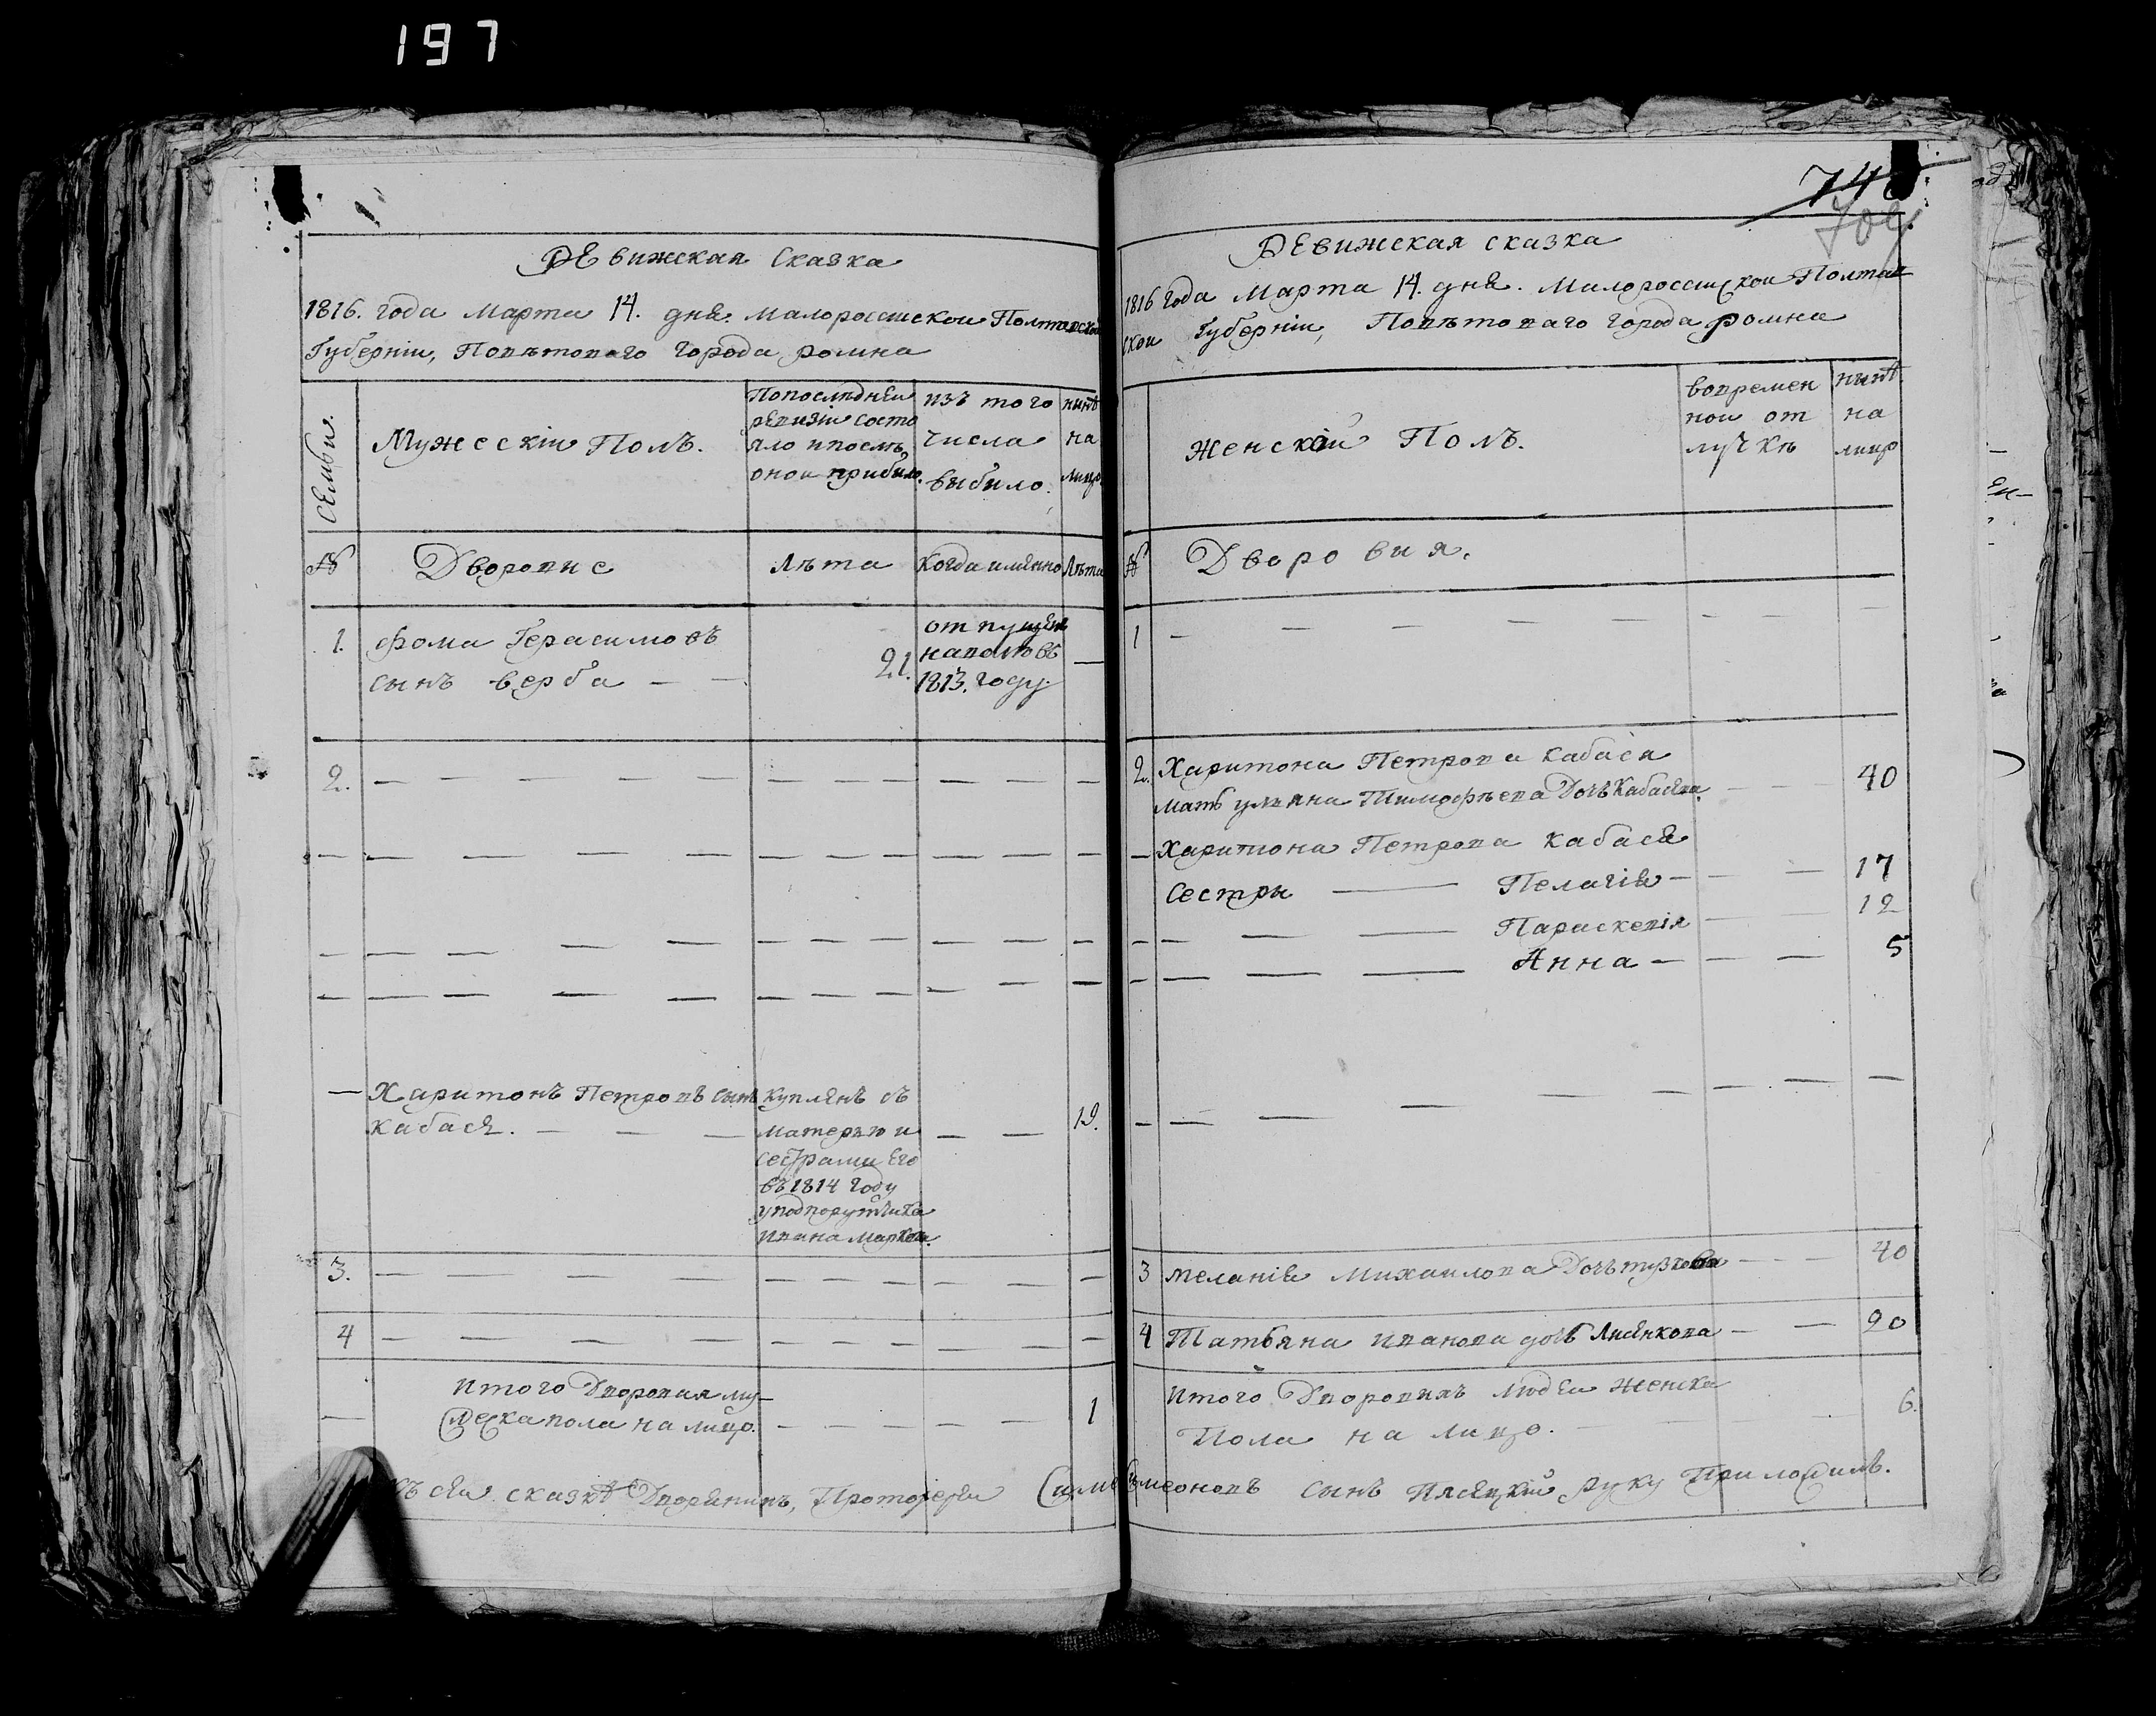 197
РЕвижская Сказка
1816. года марта 14. дня. малоросииской Полтавской
Губерніи, Повѣтоваго города ромна
СЕмьи.
Мужескій Полъ.
Попослѣдней
рЕвизіи состо
яло ипослѣ
оной прибыло.
изъ того
числа
выбило.
нынѣ
на
лицо
№
Дворовие
лѣта
Когда имянно
Лѣта
1.
Фома Герасимовъ
сынъ верба — —
21.
отпущен
наволю въ
1813. году.
—
2. — — — — — — — — — — —
Харитонъ Петровъ сынъ
кабася. — — —
куплЕнъ съ
матерью и
сестрами Его
въ 1814 году
уподпорутчика
ивана маркова.
— —
12.
3. — — — — — — — — — —
4 — — — — — — — — — —
итого Дворовая му-
жеска пола на лицо. — — — — —
1
748
704
РЕвижская сказка
1816 года Марта 14. дня. Малоросииской Полтав
ской Губерніи, Повѣтоваго города ромна
Женскій Полъ.
вовремен
ной от
лучкѣ
нынѣ
на
лицо
№
Дворовия.
1 — — — — — — — —
2. Харитона Петрова кабася
мать уляна Тимофѣева Дочь Кабасева. — — 40
Харитона Петрова кабася
сестры — Пелагія — — — 17
Параскевія — — 12
Анна — — — 5
3 меланія Михаилова Дочь — — 40
4 Татьяна иванова дочь Лисенкова — — 20
итого Дворовихъ людей женска
Пола на лицо. 6.
Къ сей сказкѣ Дворянинъ, Протоіерей Симеоновъ сынъ Пясецкій руку Приложилъ.